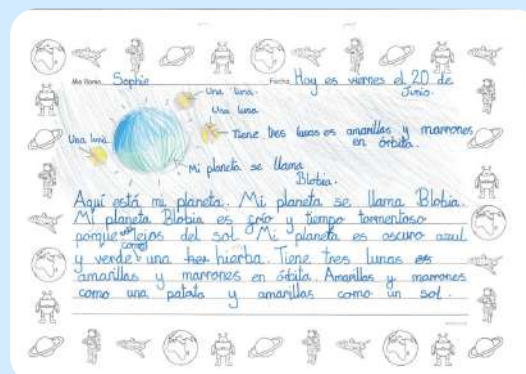 Me llamo Sophie Fecha Hoy es viernes el 20 de Junio.
Una luna.
Una luna
Una luna
Tiene tres lunas es amarillas y marrones en órbita.
Mi planeta se llama Blobia.
Aquí está mi planeta. Mi planeta se llama Blobia.
Mi planeta Blobia es frío y tiempo tormentoso
porque lejos del sol. Mi planeta es oscuro azul
y verde como una hierba. Tiene tres lunas es
amarillas y marrones en órbita. Amarillas y marrones
como una patata y amarillas como un sol.